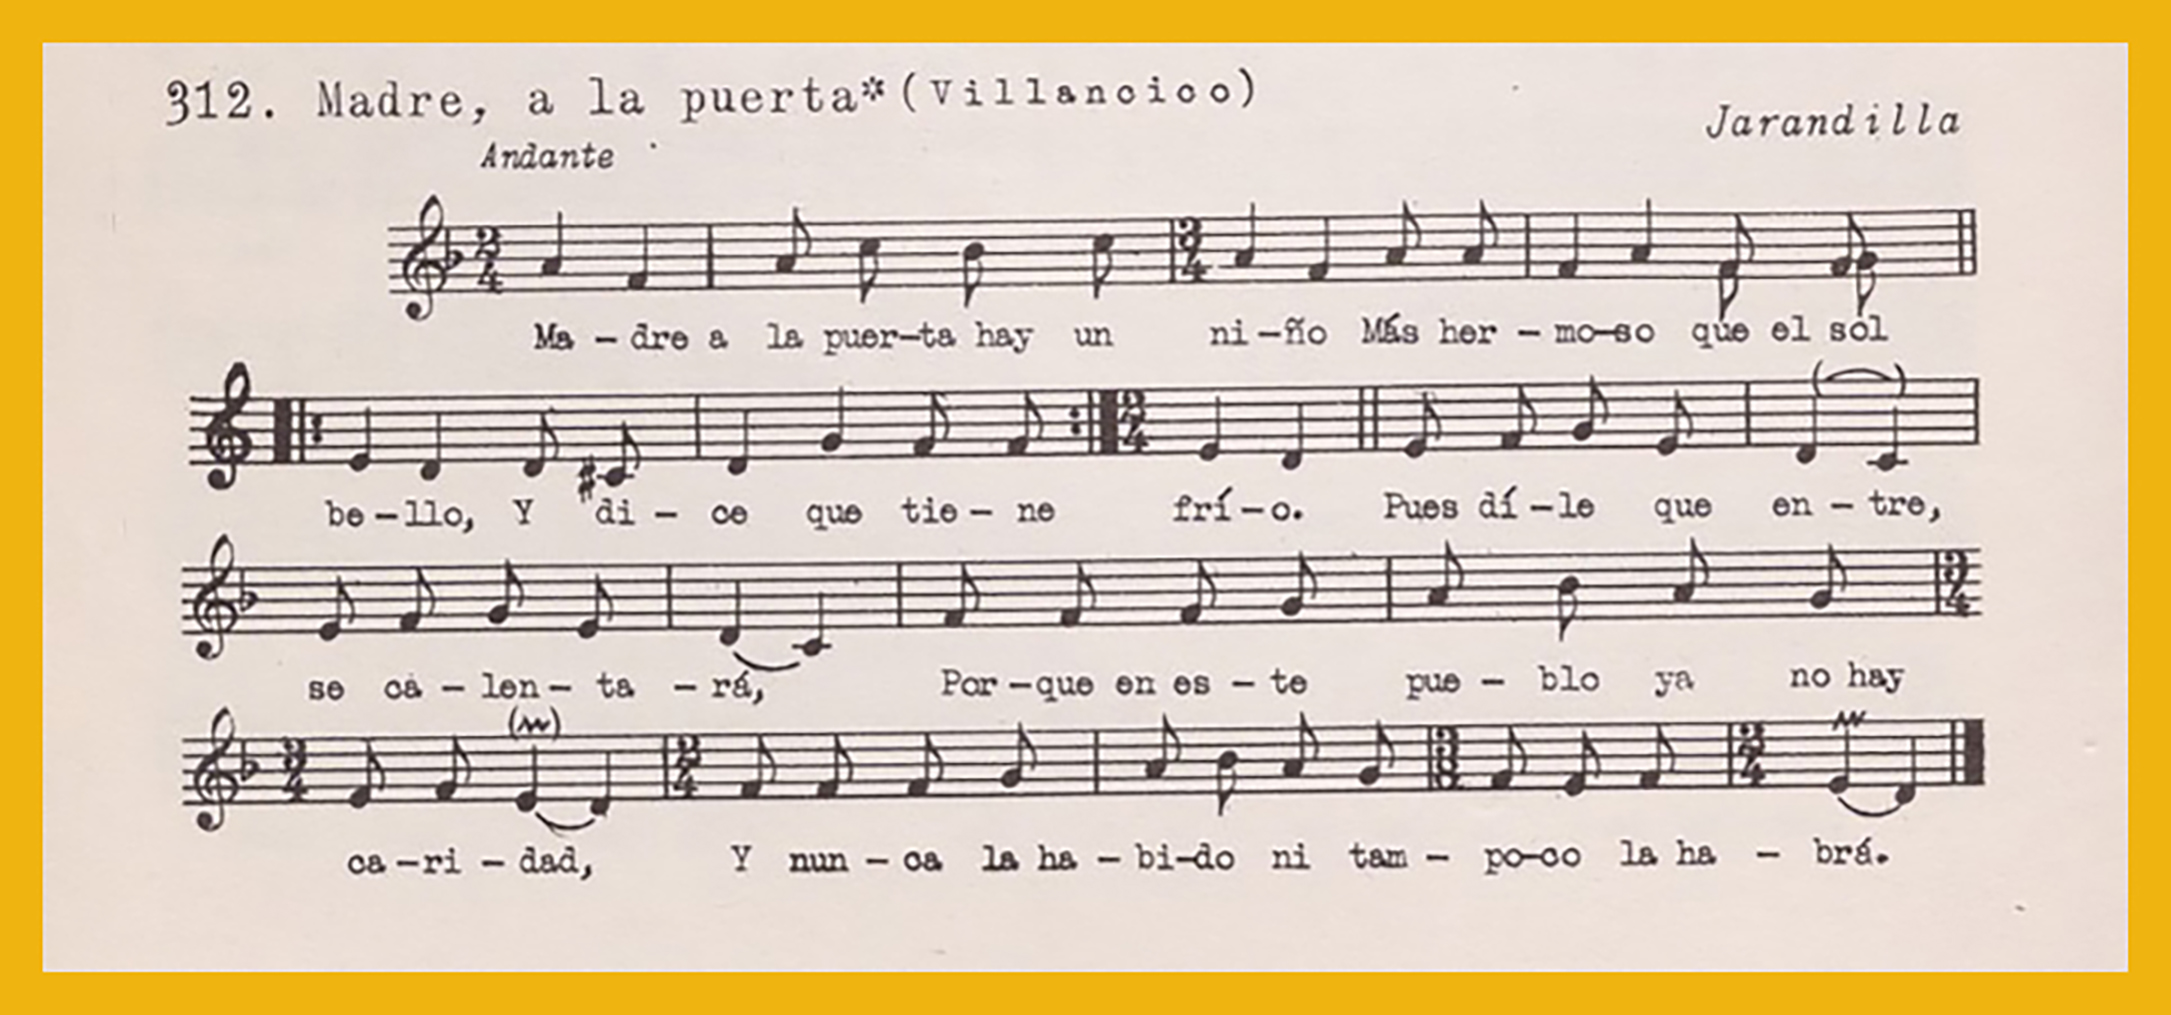 312. Madre, a la puerta* (Villancico)
Jarandilla
Andante
Ma - dre a la puer-ta hay un ni-ño Más her - mo-so que el sol
be-llo, Y di - ce que tie - ne frí-o. Pues dí-le que en - tre,
se ca - len - ta - rá, Por-que en es - te pue - blo ya no hay
ca-ri - dad, Y nun - ca la ha - bi-do ni tam - po-co la ha - brá.